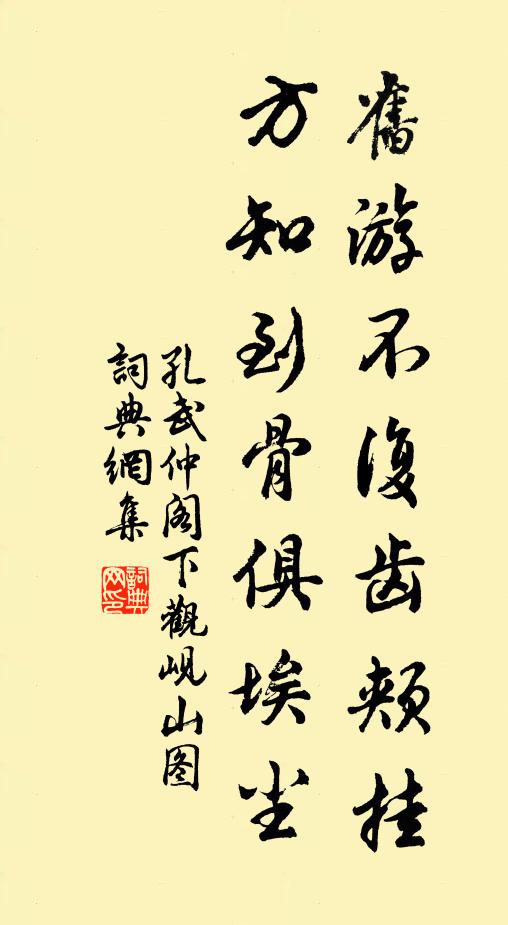 舊游不復齿頰挂
方知到骨俱埃尘
孔武仲阁下觀岘山图
詞典網集
詞典網印